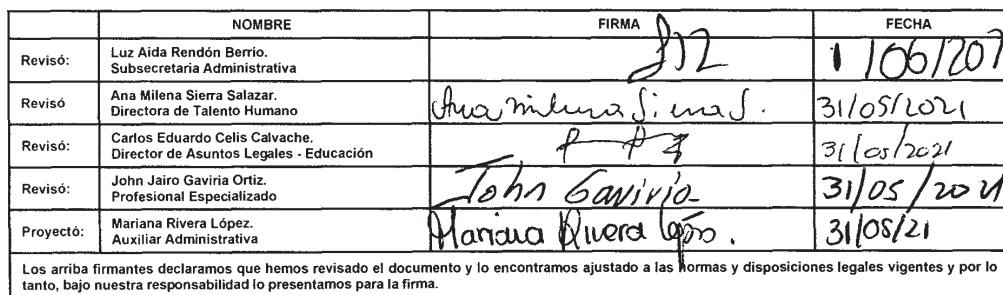 NOMBRE FIRMA FECHA
Revisó: Luz Aida Rendón Berrio.
Subsecretaria Administrativa
1/06/202
Revisó Ana Milena Sierra Salazar.
Directora de Talento Humano
Ana milena Sierra S. 31/05/2021
Revisó: Carlos Eduardo Celis Calvache.
Director de Asuntos Legales - Educación
31/05/2021
Revisó: John Jairo Gaviria Ortiz.
Profesional Especializado
John Gaviria 31/05/2021
Proyectó: Mariana Rivera López.
Auxiliar Administrativa
Mariana Rivera López. 31/05/21
Los arriba firmantes declaramos que hemos revisado el documento y lo encontramos ajustado a las normas y disposiciones legales vigentes y por lo
tanto, bajo nuestra responsabilidad lo presentamos para la firma.